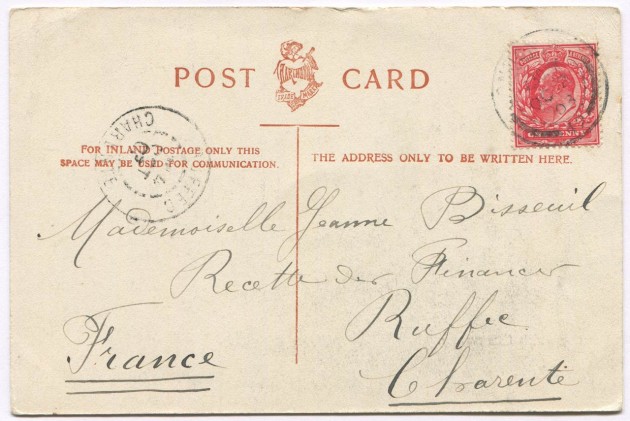 POST CARD
FOR INLAND POSTAGE ONLY THIS
SPACE MAY BE USED FOR COMMUNICATION.
THE ADDRESS ONLY TO BE WRITTEN HERE.
RUFFEC
Mademoiselle Jeanne Bisseuil
Recette des Finances
Ruffec
France
Charente